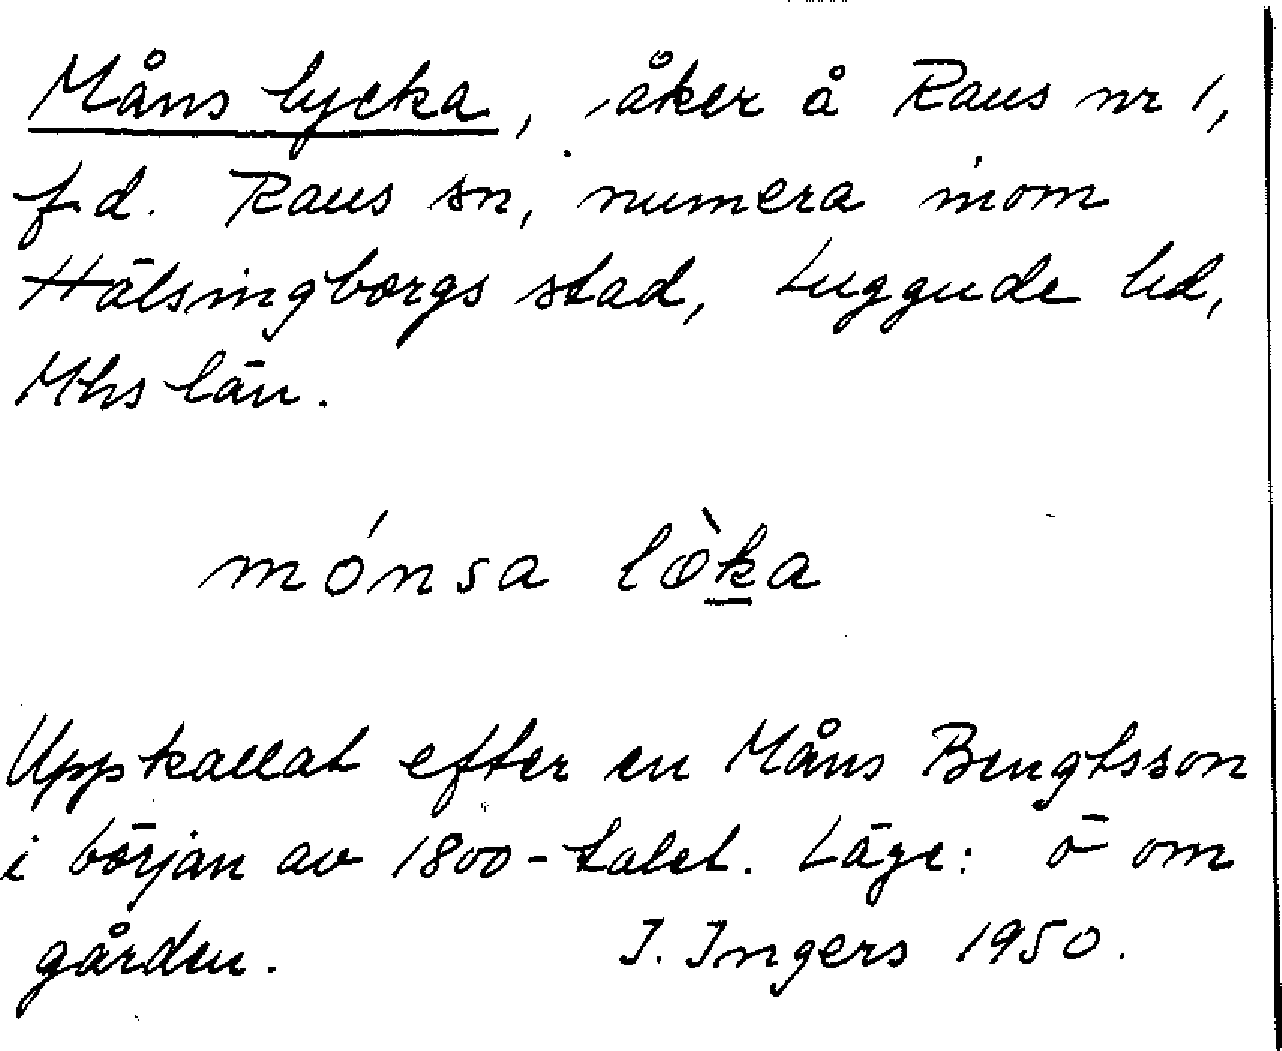 Måns lycka, åker å Raus nr 1,
f.d. Raus sn, numera inom
Hälsingborgs stad, Luggude hd,
Mhs län.
mónsa lø̀ka
Uppkallat efter en Måns Bengtsson
i början av 1800-talet. Läge: ö om
gården. I. Ingers 1950.